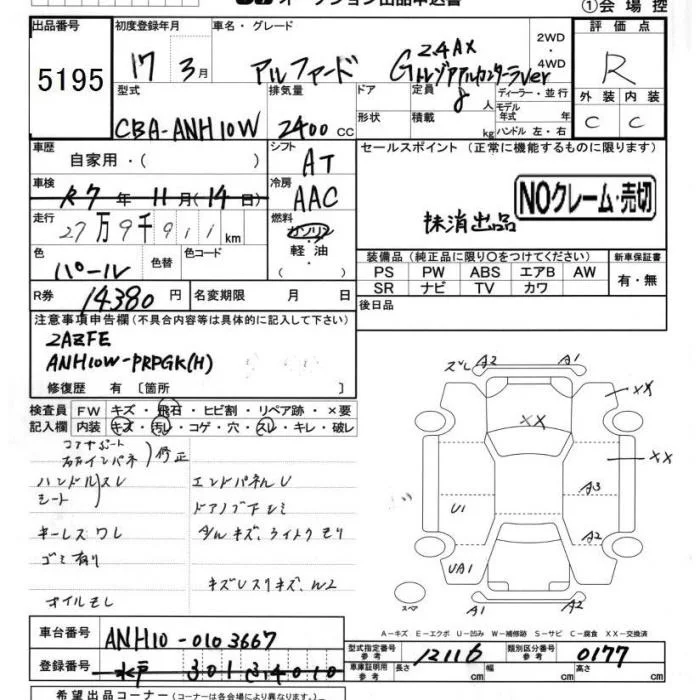 ①会場控
出品番号 5195
初度登録年月 17 3月
車名・グレード アルファード G 2.4AX
2WD・4WD
評価点 R
外装 C 内装 C
型式 CBA-ANH10W
排気量 2400 cc
ドア 形状
定員 8人
積載 kg
ディーラー・並行
モデル年式 年
ハンドル 左・右
車歴 自家用・( )
シフト AT
セールスポイント (正常に機能するものに限ります)
車検 R7年11月(14日)
冷房 AAC
抹消出品
NOクレーム・売切
走行 27万9千911km
燃料 ガソリン 軽・油
色 パール 色替 色コード
装備品 (純正品に限り○をつけてください)
新車保証書 有・無
PS PW ABS エアB AW
SR ナビ TV カワ
R券 14380円
名変期限 月 日
後日品
注意事項申告欄 (不具合内容等は具体的に記入して下さい)
2AZFE
ANH10W-PRPGK(H)
修復歴 有〔箇所 〕
検査員記入欄
FW キズ・飛石・ヒビ割・リペア跡・×要
内装 キズ・汚レ・コゲ・穴・スレ・キレ・破レ
コアサポート
右左インパネ 修正
ハンドルスレ
シート
エンドパネルU
キーレスワレ
ゴミ有り
オイルモレ
ズレ A2 A1
XX
XX
XX
A3
U1
A2
UA1
A1 A2
スペア
A-キズ E-エクボ U-凹み W-補修跡 S-サビ C-腐食 XX-交換済
車台番号 ANH10-0103667
登録番号 水戸 301 そ 4010
型式指定番号 参考 12116
類別区分番号 参考 0177
車庫証明用 参考 長さ cm 幅 cm 高さ cm
希望出品コーナー (コーナーは各会場により異なります)